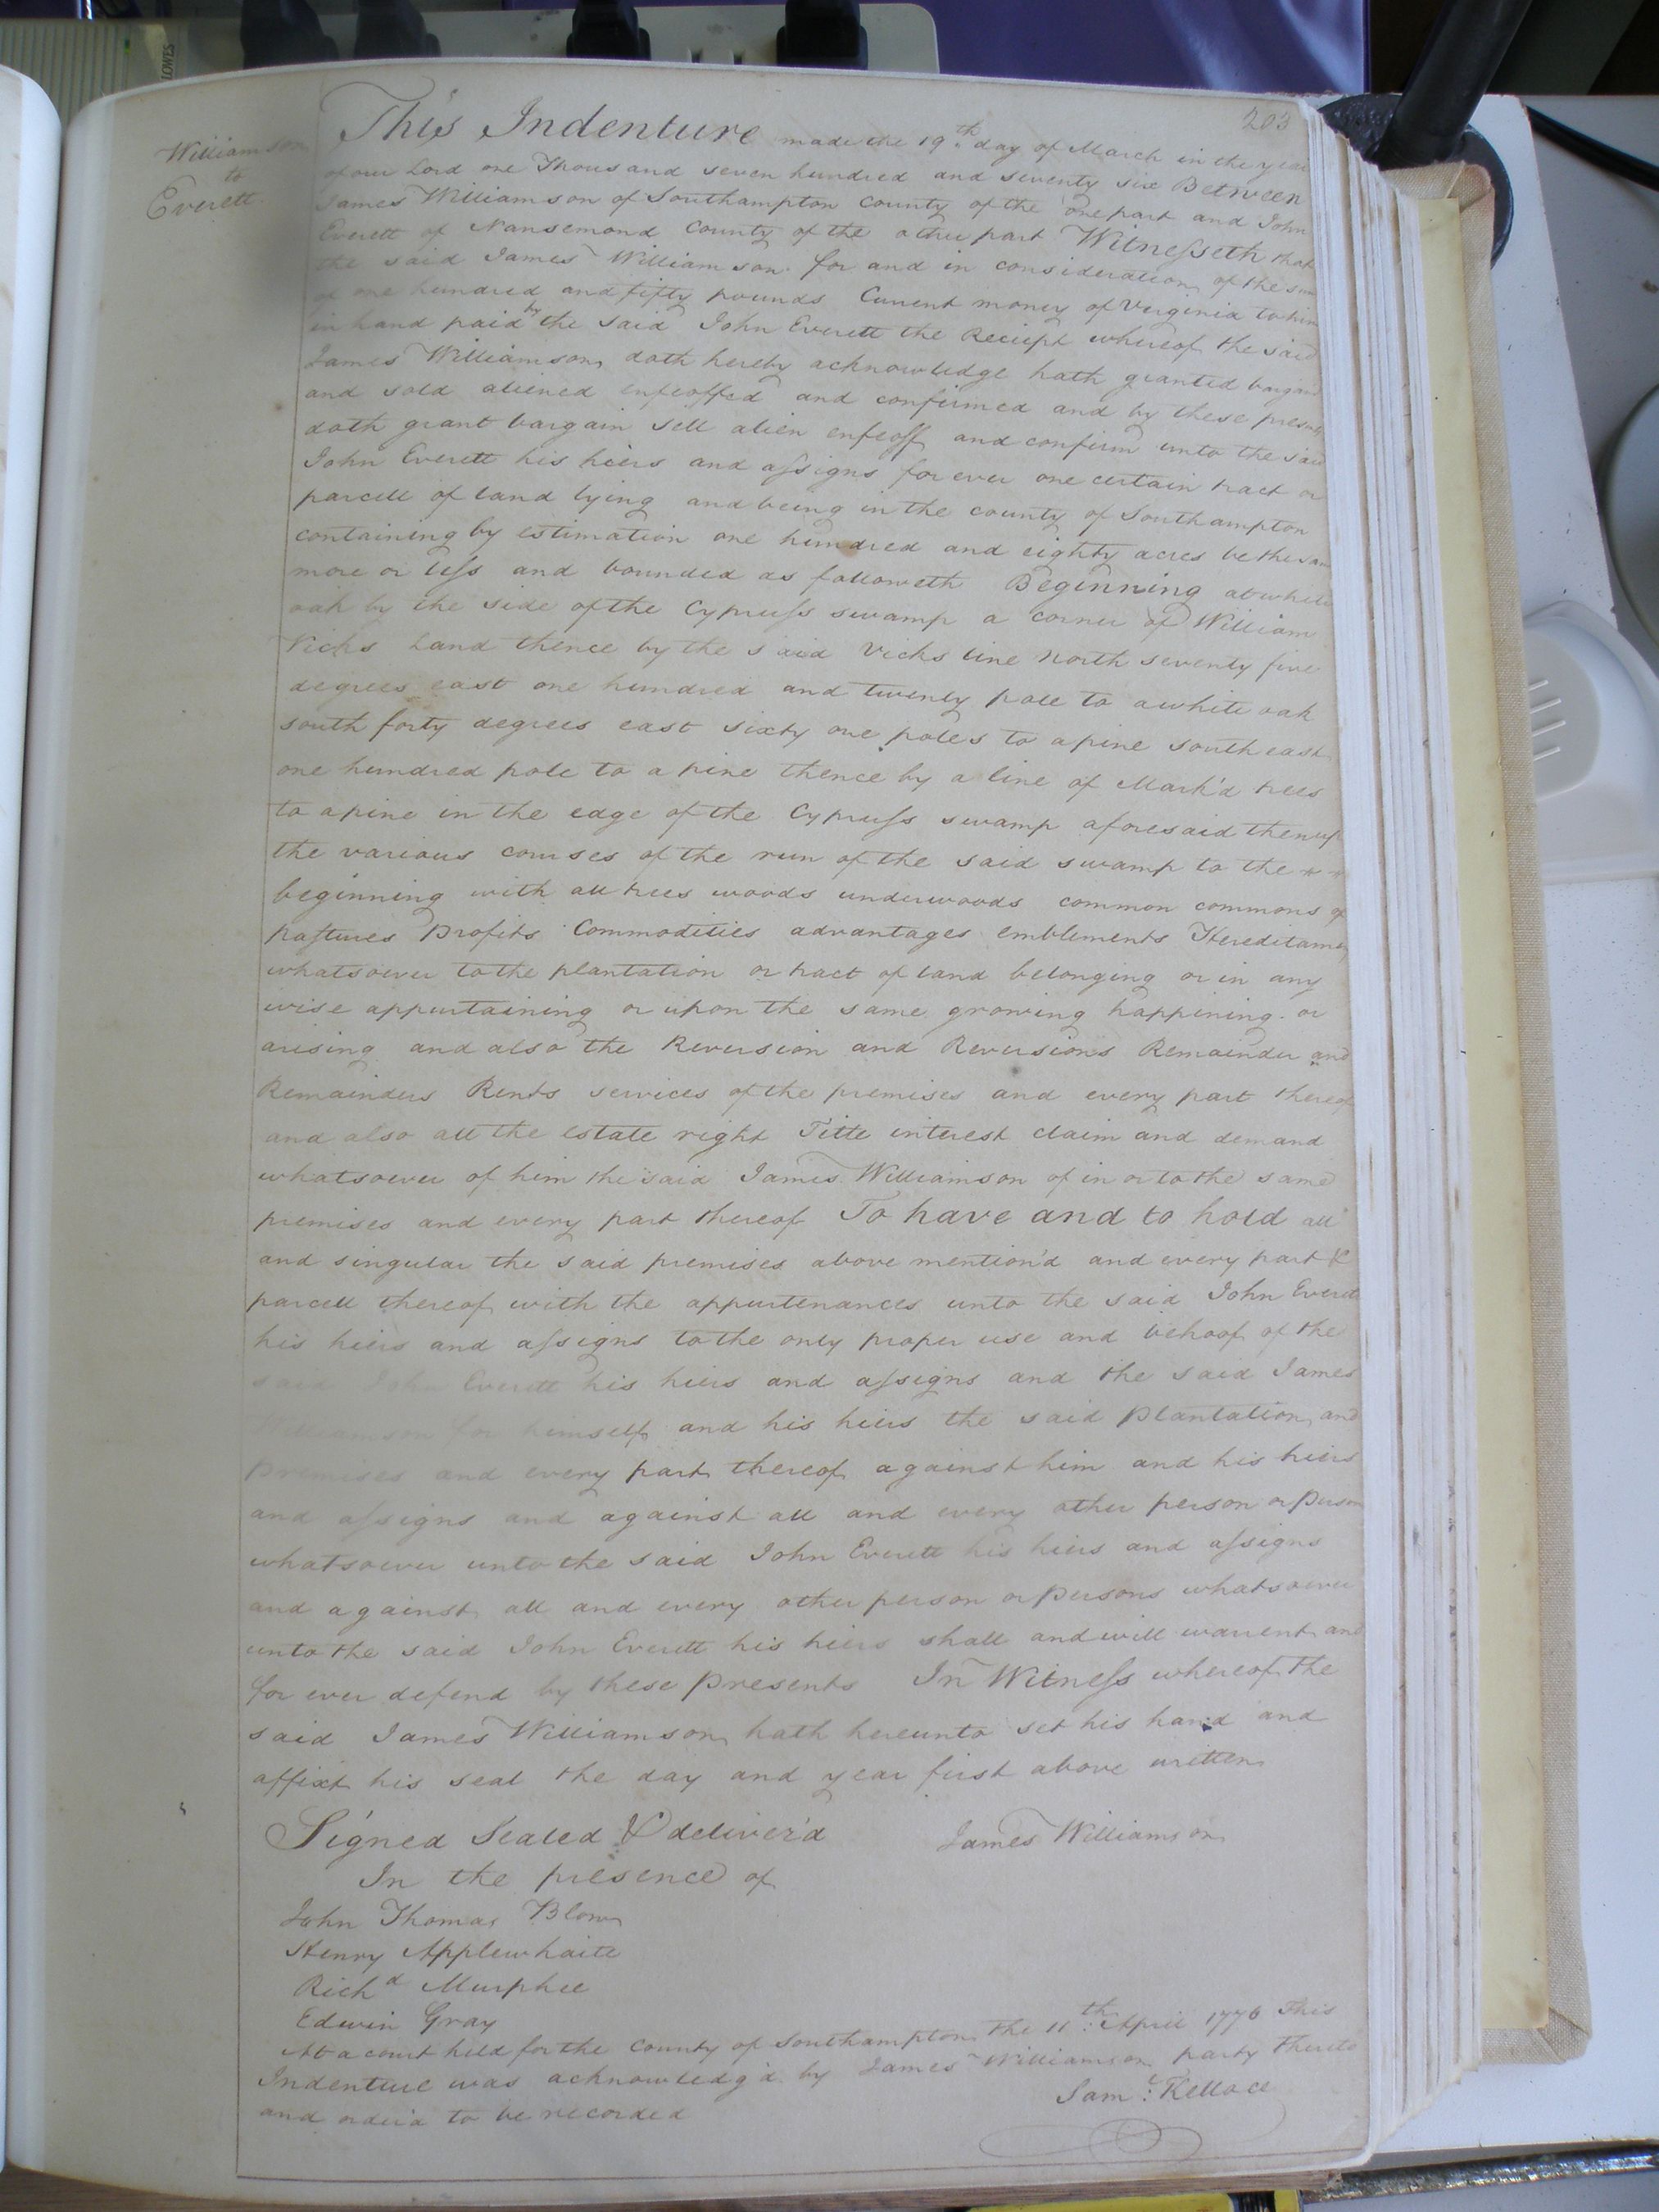 LOWES
203
Williamson
to
Everett.
This Indenture made the 19th. day of March in the year
of our Lord one Thousand seven hundred and seventy six Between
James Williamson of Southampton County of the one part and John
Everett of Nansemond County of the other part Witnesseth that
the said James Williamson for and in consideration of the sum
of one hundred and fifty pounds Current money of Virginia to him
in hand paid by the said John Everett the Reciept whereof the said
James Williamson doth hereby acknowledge hath granted bargain
and sold aliened enfeoffed and confirmed and by these presents
doth grant bargain sell alien enfeoff and confirm unto the said
John Everett his hiers and assigns for ever one certain tract or
parcell of land lying and being in the county of Southampton
containing by estimation one hundred and eighty acres be the same
more or less and bounded as followeth Beginning at white
oak by the side of the Cypruss swamp a corner of William
Vicks Land thence by the said Vicks line North seventy five
degrees east one hundred and twenty pole to a white oak
south forty degrees east sixty one poles to a pine south east
one hundred pole to a pine thence by a line of Mark'd trees
to a pine in the edge of the Cypruss swamp aforesaid then up
the various courses of the run of the said swamp to the
beginning with all trees woods underwoods common commons of
pastures Profits Commodities advantages emblements Hereditaments
whatsoever to the plantation or tract of land belonging or in any
wise appurtaining or upon the same growing happining or
arising and also the Reversion and Reversions Remainder and
Remainders Rents services of the premises and every part thereof
and also all the estate right Title interest claim and demand
whatsoever of him the said James Williamson of in or to the same
premises and every part thereof To have and to hold all
and singular the said premises above mention'd and every part &
parcell thereof with the appurtenances unto the said John Everett
his hiers and assigns to the only proper use and behoof of the
said John Everett his hiers and assigns and the said James
Williamson for himself and his hiers the said Plantation and
Premises and every part thereof against him and his hiers
and assigns and against all and every other person or Person
whatsoever unto the said John Everett his hiers and assigns
and against all and every other person or Persons whatsoever
unto the said John Everett his hiers shall and will warrent and
for ever defend by these Presents In Witness whereof the
said James Williamson hath hereunto set his hand and
affixt his seal the day and year first above written
Signed Sealed & deliver'd James Williamson
In the presence of
John Thomas Blow
Henry Applewhaite
Richd Murphee
Edwin Gray
At a court held for the County of Southampton the 11th. April 1776 This
Indenture was acknowledg'd by James Williamson party thereto
and order'd to be recorded
Saml. Kelloce